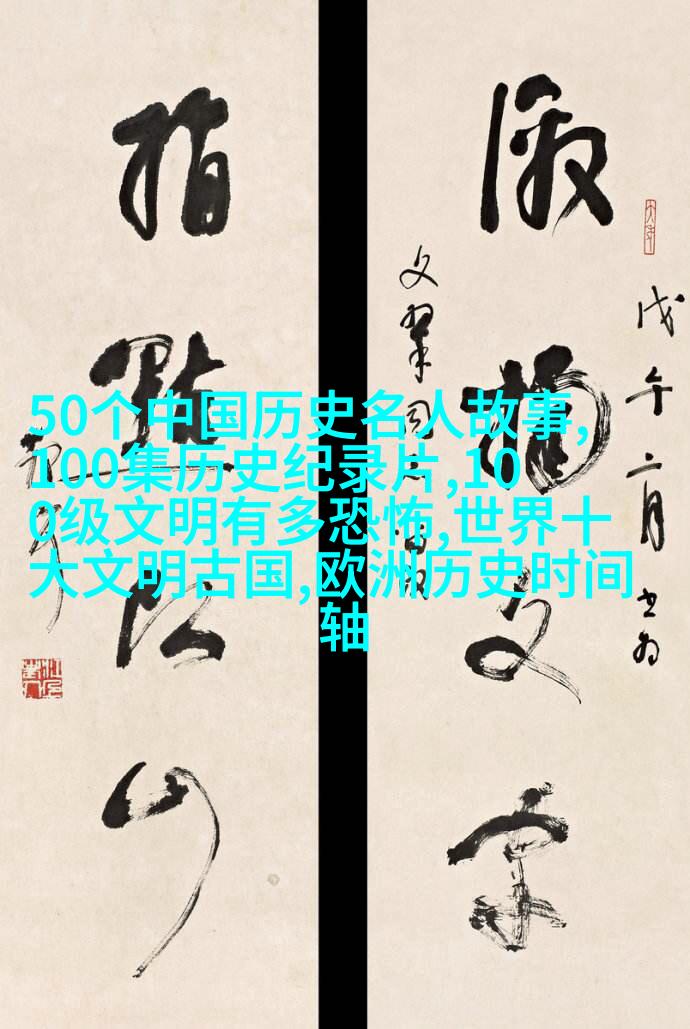 50个中国历史名人故事,
100集历史纪录片,10
0级文明有多恐怖,世界十
大文明古国,欧洲历史时间
轴
戊午二月书为
激揚文字
指點江山